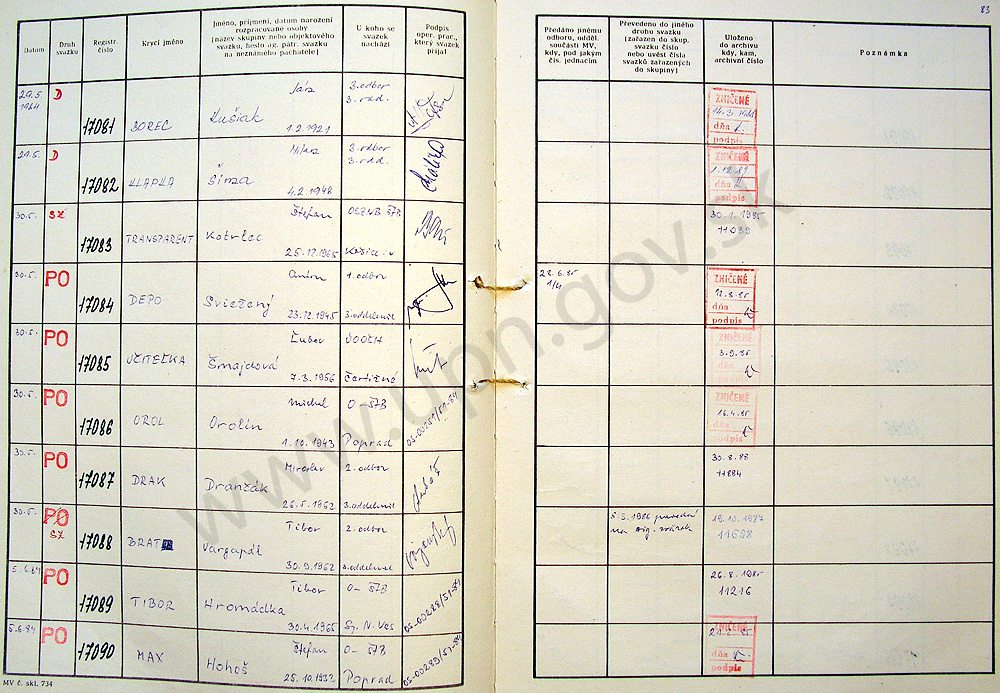 83
Datum
Druh svazku
Registr. číslo
Krycí jméno
Jméno, příjmení, datum narození
rozpracované osoby
(název skupiny nebo objektového
svazku, heslo ag. pátr. svazku
na neznámého pachatele)
U koho se
svazek
nachází
Podpis
oper. prac.,
který svazek
přijal
Předáno jinému
odboru, odděl.
součásti MV,
kdy, pod jakým
čís. jednacím
Převedeno do jiného
druhu svazku
(zařazen do skup.
svazku číslo
nebo uvést čísla
svazků zařazených
do skupiny)
Uloženo
do archivu
kdy, kam,
archivní číslo
Poznámka
29.5. 1984 D 17081 BOREC Ján 3. odbor
Lušiak 3. odd.
1.2.1921
ZNIČENÉ
dňa
podpis
29.5. D 17082 KLAPKA 3. odbor
Šima 3. odd.
4.2.1948
ZNIČENÉ
1.12.89
dňa
podpis
30.5. SZ 17083 TRANSPARENT Štefan OSZNB ŠTB
Kotrlec
25.12.1965 Košice
30.1.1985
11089
30.5. PO 17084 DEPO 1. odbor
Sviežený
23.12.1945 3. oddelenie
28.6.85
1/4
ZNIČENÉ
12.8.85
dňa
podpis
30.5. PO 17085 UČITEĽKA Ľubov
Šmajdová
7.3.1956 Čertižné
3.9.85
dňa
podpis
30.5. PO 17086 OROL Michal O-ŠTB
Orolín
1.10.1943 Poprad OS-00251/51-84
ZNIČENÉ
16.4.85
dňa
podpis
30.5. PO 17087 DRAK Miroslav 2. odbor
Dranžák
26.5.1962 3. oddelenie
30.8.88
11884
30.5. PO SZ 17088 BRAT Tibor 2. odbor
Vargapál
30.9.1962 3. oddelenie
5.3.1986
19.10.1987
11698
5.6.84 PO 17089 TIBOR Tibor O-ŠTB
Hromádka
30.4.1965 Sp. N. Ves OS-00288/51-84
26.8.1985
11216
5.6.84 PO 17090 MAX Štefan O-ŠTB
Hohoš
25.10.1932 Poprad OS-00289/51-84
ZNIČENÉ
dňa
podpis
MV č. skl. 734
www.upn.gov.sk